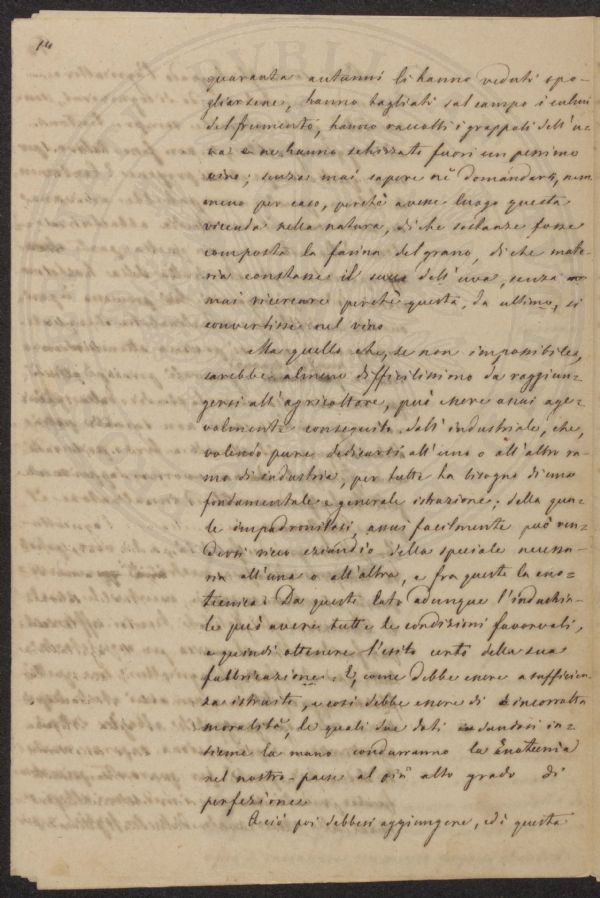 14
quaranta autunni li hanno veduti spo=
gliarsene, hanno tagliati sul campo i culmi
del frumento, hanno raccolti i grappoli dell'u=
va: e ne hanno schizzato fuori un pessimo
vino; senza mai sapere nè domandarsi, nem
meno per caso, perchè avesse luogo questa
vicenda nella natura, di che sostanze fosse
composta la farina del grano, di che mate=
ria constasse il succo dell'uva, senza
mai ricercare perchè questa, da ultimo, si
convertisse nel vino
Ma quello che, se non impossibile,
sarebbe almeno difficilissimo da raggiun=
gersi all'agricoltore, può essere assai age=
volmente conseguito dall'industriale, che,
volendo pure dedicarsi all'uno o all'altro ra=
mo di industria, per tutte ha bisogno di una
fondamentale e generale istruzione; della qua=
le impadronitosi, assai facilmente può ren=
dersi ricco eziandio della speciale necessa=
ria all'una o all'altra, e fra queste la eno=
tecnica: Da questo lato adunque l'industria=
le può avere tutte le condizioni favorevoli,
e quindi ottenere l'esito certo della sua
fabbricazione. E, come debbe essere a sufficien=
za istruito, e così debbe essere di incorrotta
moralità, le quali due doti dandosi in=
sieme la mano condurranno la enotecnia
nel nostro paese al più alto grado di
perfezione
A ciò poi debbesi aggiungere, ed è questa